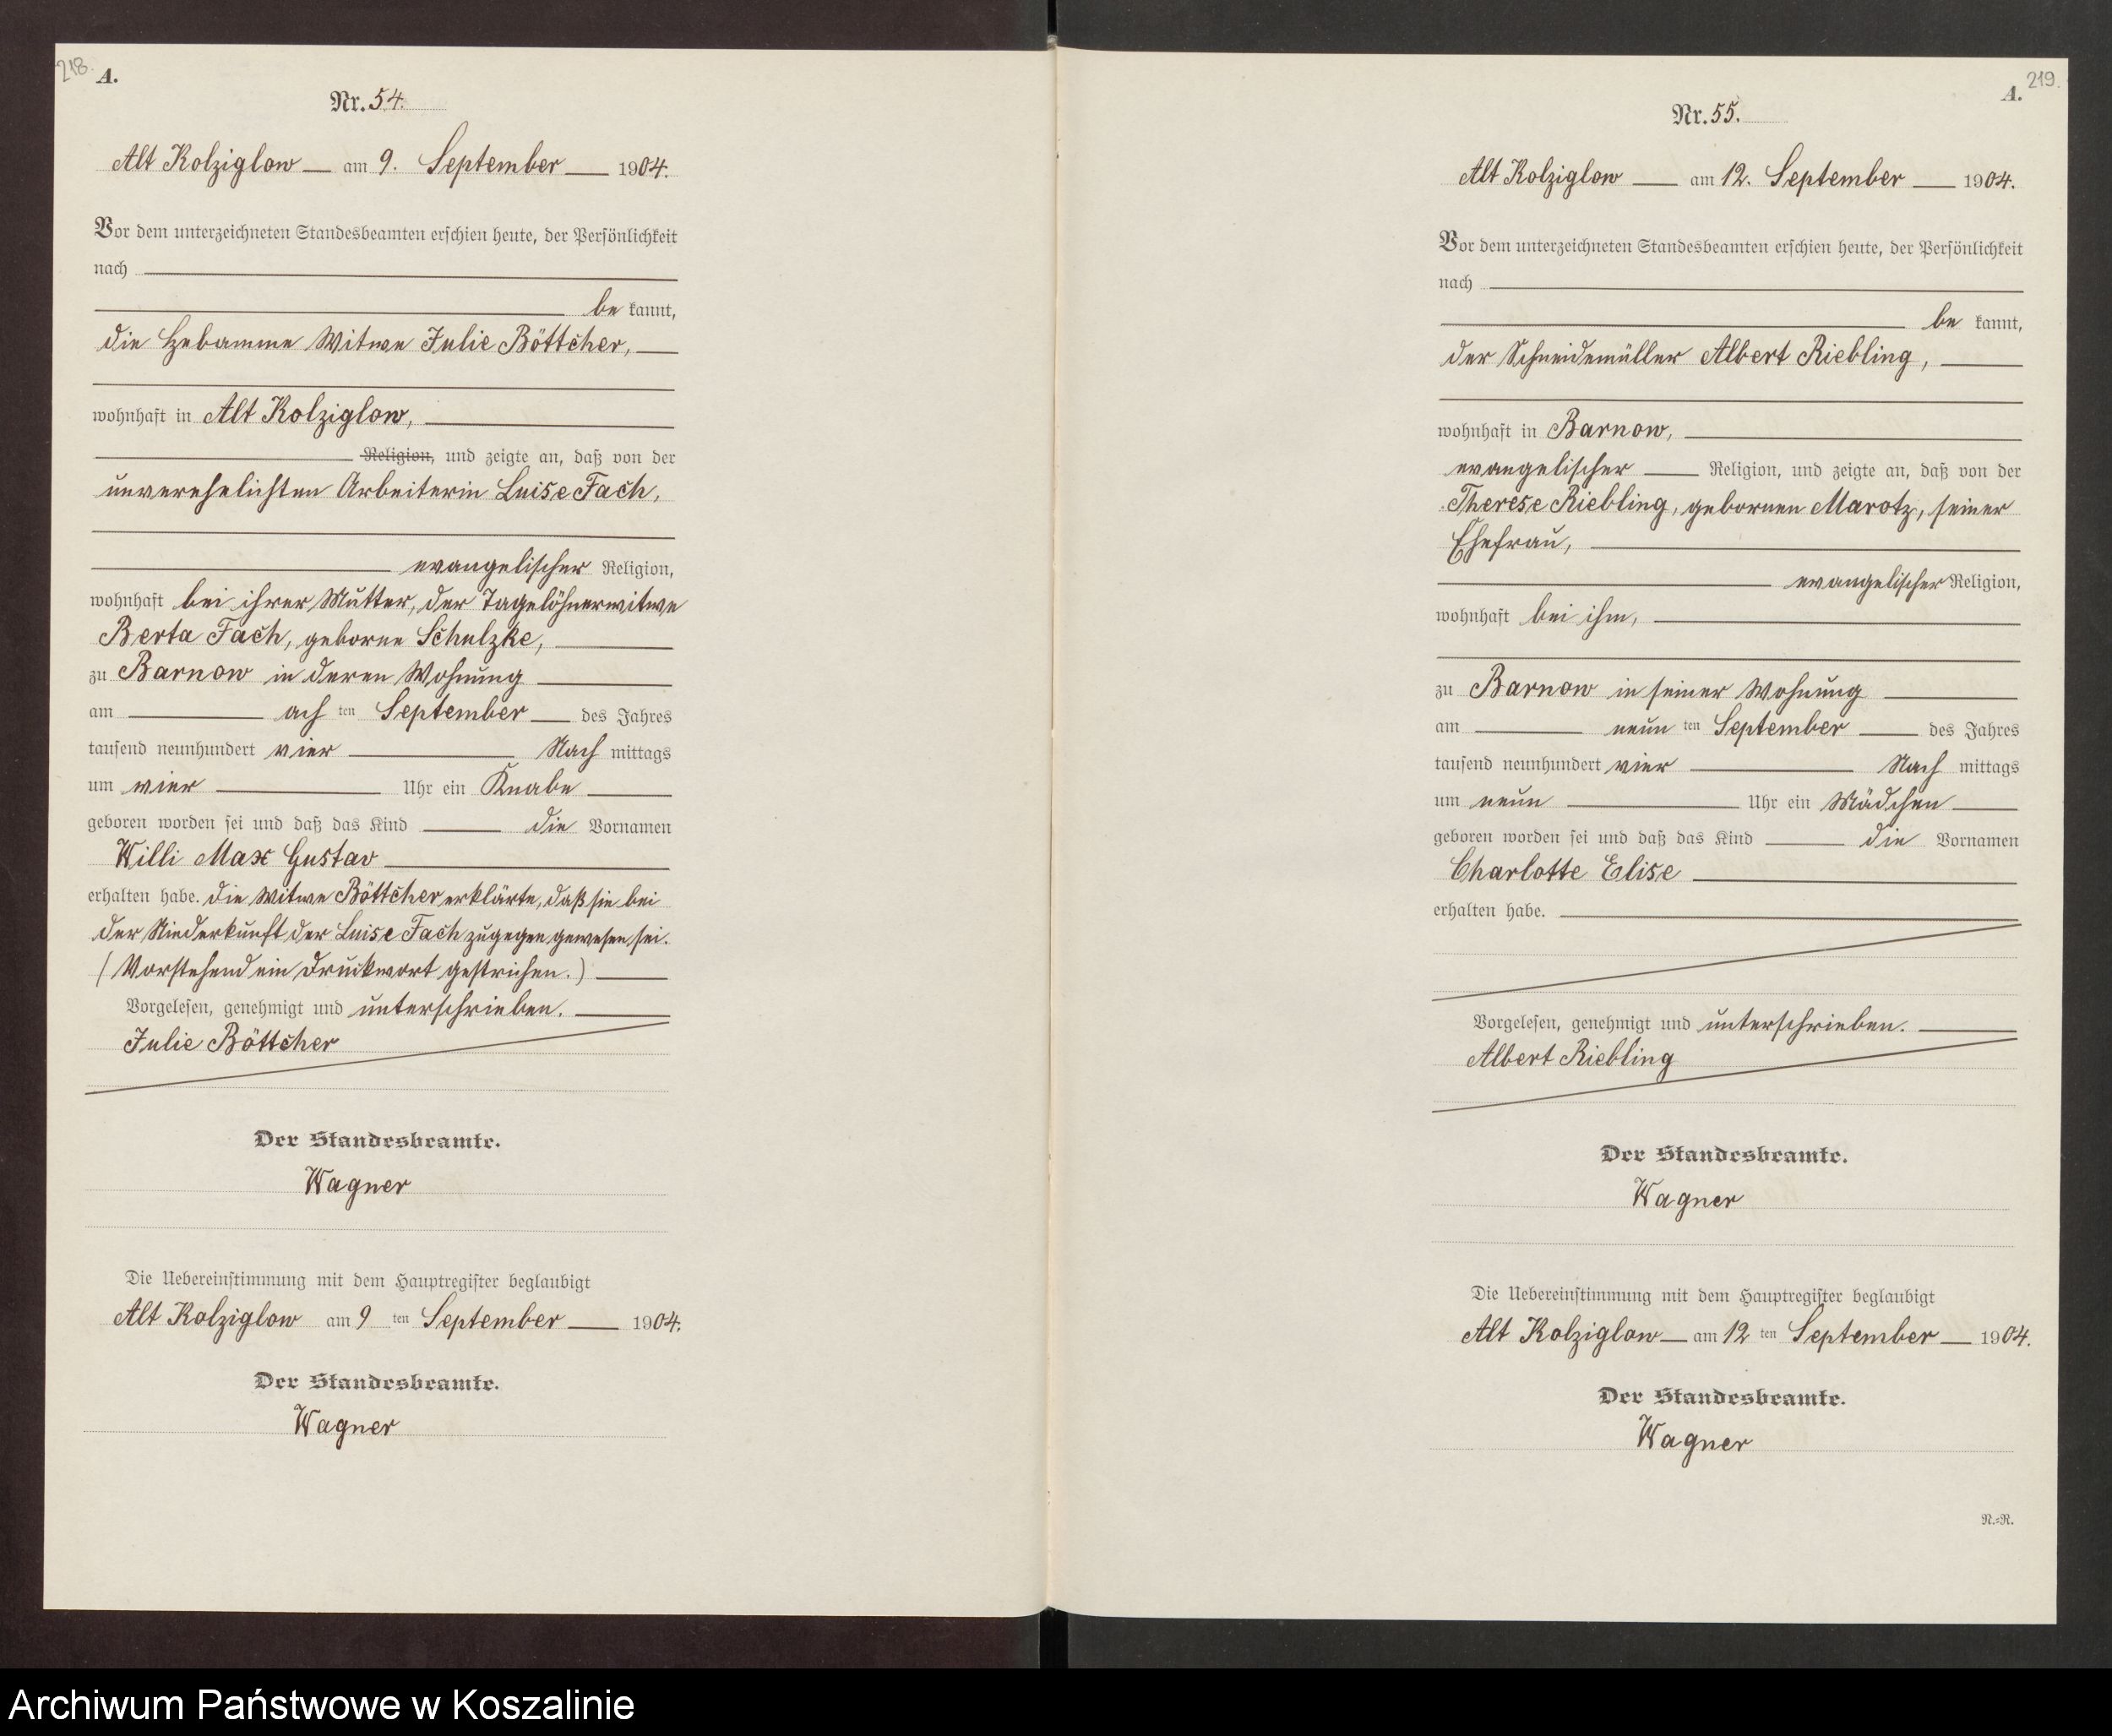 218.
A.
Nr. 54.
Alt Kolziglow — am 9. September — 1904.
Vor dem unterzeichneten Standesbeamten erschien heute, der Persönlichkeit
nach
be kannt,
die Hebamme Witwe Julie Böttcher,
wohnhaft in Alt Kolziglow,
Religion, und zeigte an, daß von der
unverehelichten Arbeiterin Luise Fach,
evangelischer Religion,
wohnhaft bei ihrer Mutter, der Tagelöhnerwitwe
Berta Fach, geborne Schulzke,
zu Barnow in deren Wohnung
am ach ten September des Jahres
tausend neunhundert vier Nach mittags
um vier Uhr ein Knabe
geboren worden sei und daß das Kind die Vornamen
Willi Max Gustav
erhalten habe. Die Witwe Böttcher erklärte, daß sie bei
der Niederkunft der Luise Fach zugegen gewesen sei.
(Vorstehend ein Druckwort gestrichen.)
Vorgelesen, genehmigt und unterschrieben.
Julie Böttcher
Der Standesbeamte.
Wagner
Die Uebereinstimmung mit dem Hauptregister beglaubigt
Alt Kolziglow am 9 ten September — 1904.
Der Standesbeamte.
Wagner
219.
A.
Nr. 55.
Alt Kolziglow — am 12. September — 1904.
Vor dem unterzeichneten Standesbeamten erschien heute, der Persönlichkeit
nach
be kannt,
der Schneidemüller Albert Riebling,
wohnhaft in Barnow,
evangelischer — Religion, und zeigte an, daß von der
Therese Riebling, gebornen Marotz, seiner
Ehefrau,
evangelischer Religion,
wohnhaft bei ihm,
zu Barnow in seiner Wohnung
am neun ten September des Jahres
tausend neunhundert vier Nach mittags
um neun Uhr ein Mädchen
geboren worden sei und daß das Kind die Vornamen
Charlotte Elise
erhalten habe.
Vorgelesen, genehmigt und unterschrieben.
Albert Riebling
Der Standesbeamte.
Wagner
Die Uebereinstimmung mit dem Hauptregister beglaubigt
Alt Kolziglow — am 12 ten September — 1904.
Der Standesbeamte.
Wagner
N.-R.
Archiwum Państwowe w Koszalinie